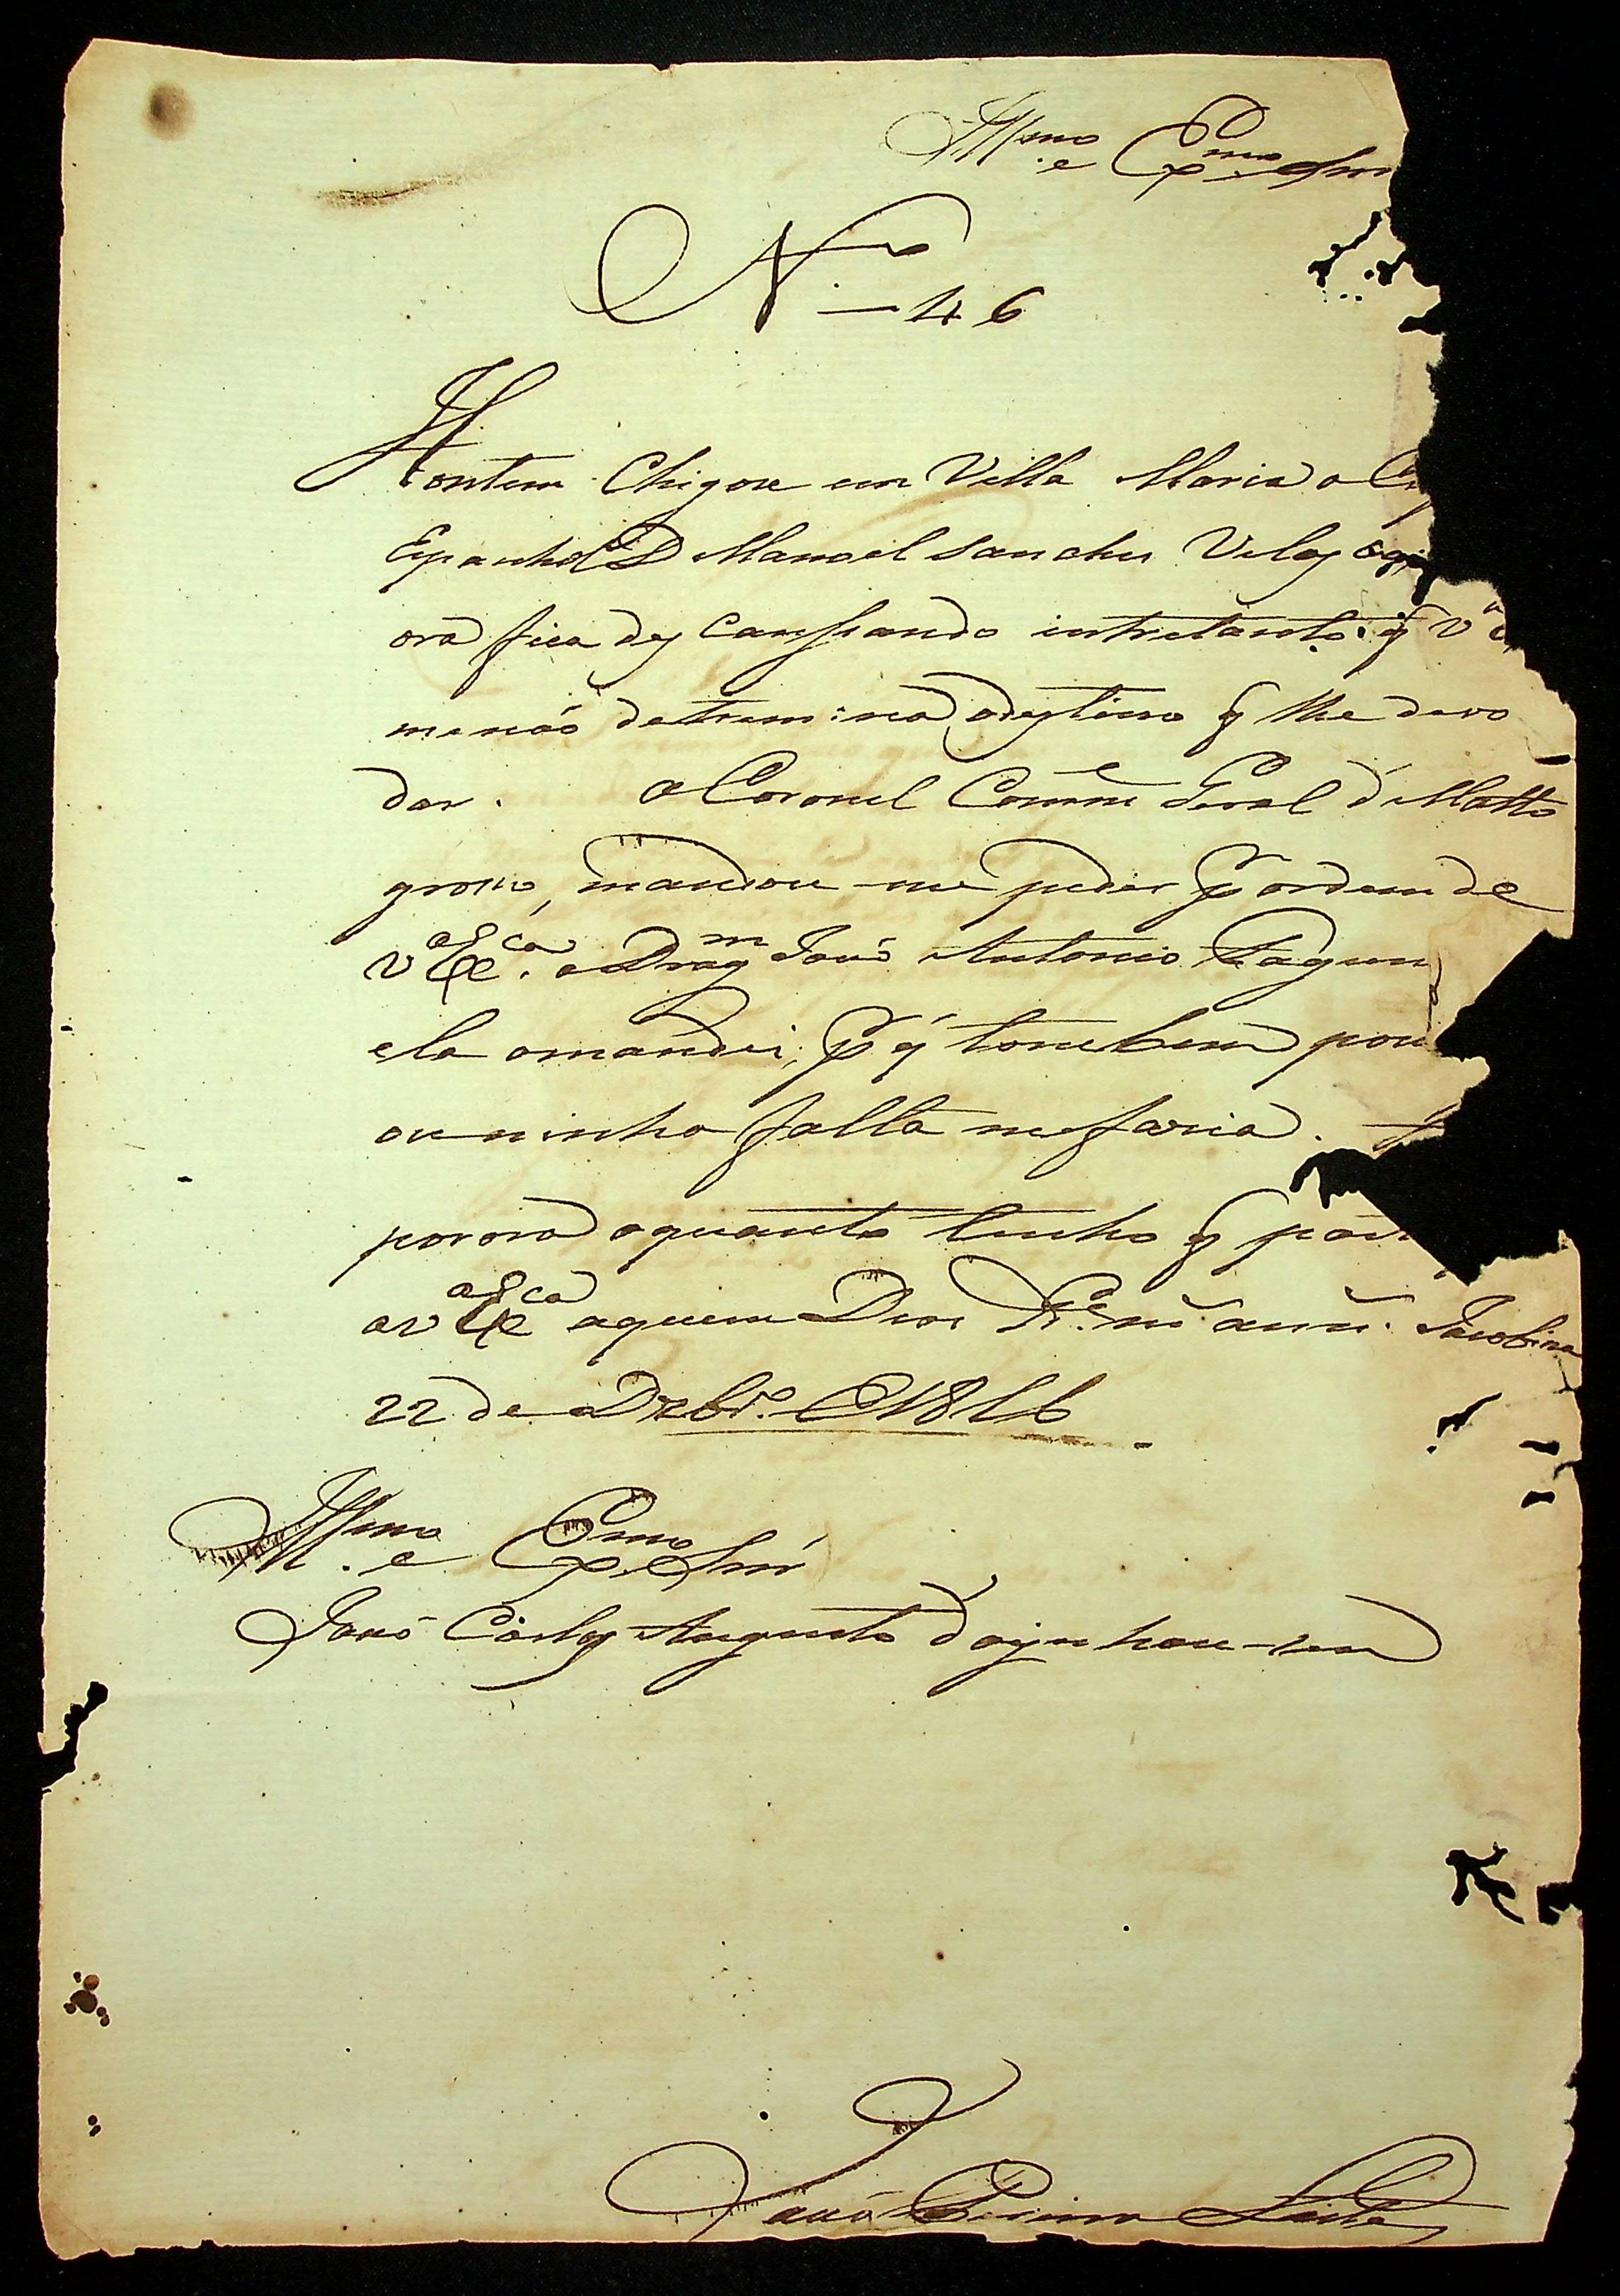 Illmo. e Exmo. Snr
N.o — 46
Hontem Chigou em Villa Maria o
Espanhol D Manoel Sanches Velas
ora fica descansando intretanto q V
me não detremina odestino q lhe devo
dar. O Coronel Comme Geral d Matto
groso, mandou-me pedir p ordem de
V Exca. o Dragm João Antonio
ela omandei, p q tãobem
ou ninhã falta mefaria.
porora oquanto tenho q
aV Exca aquem Deos Ge. ms. ans. Jacobina
22 de Dezbro. 1816
Illmo. e Exmo. Snr
João Carlos Augusto d oyenhausen
João Pereira Leite